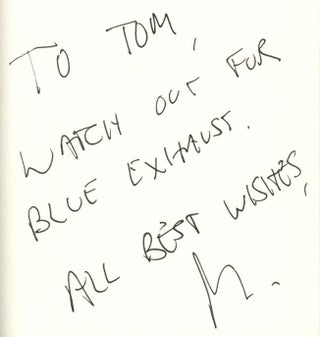 TO TOM,
WATCH OUT FOR
BLUE EXHAUST.
ALL BEST WISHES,